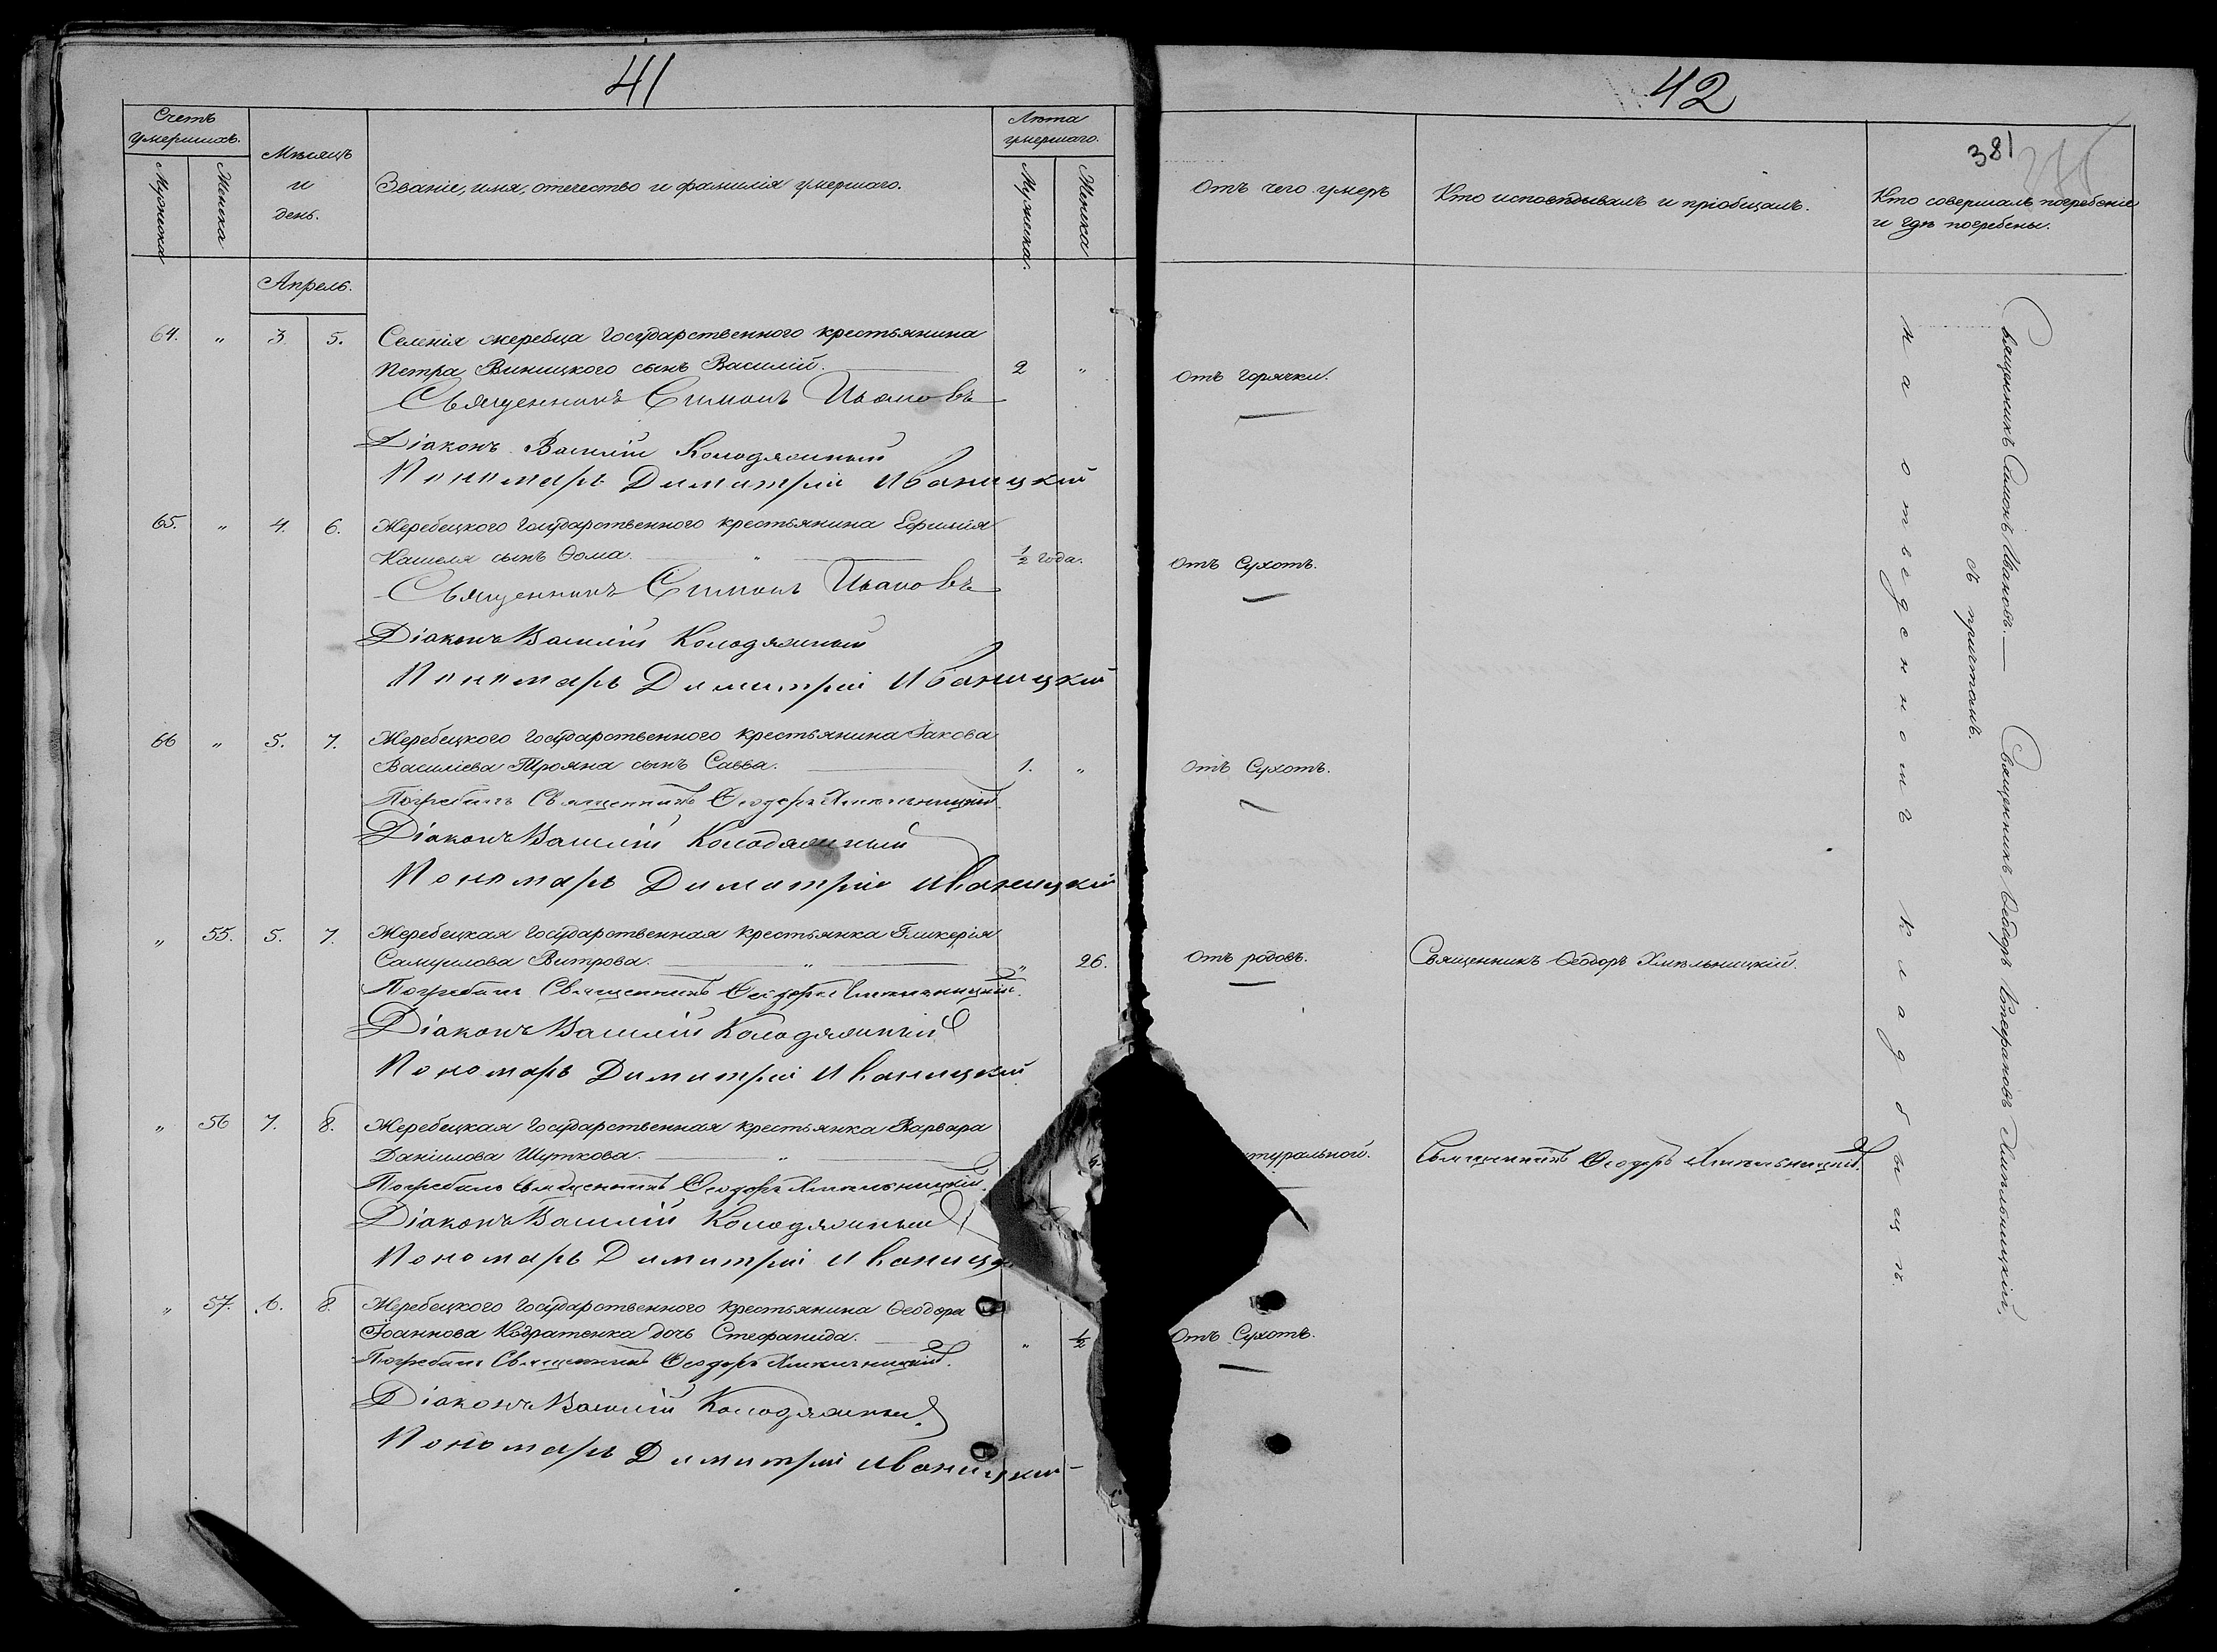 41
Счетъ
умершихъ.
Мужеска
Женска
Мѣсяцъ
и
день.
Званіе, имя, отечество и фамилія умершаго.
Лѣта
умершаго.
Мужеска.
Женска
Апрель.
64. „ 3. 5. Селенія жеребца Государственного крестьянина
Петра Виницкого сынъ Василій. 2 „
Священникъ Симонъ Ивановъ
Діаконъ Василій Колодяжный
Пономарь Димитрій Иваницкій
65. „ 4. 6. Жеребецкого Государственного крестьянина Ефимія
Кашеля сынъ Ѳома. „ 1/2 года.
Священникъ Симонъ Ивановъ
Діаконъ Василій Колодяжный
Пономарь Димитрій Иваницкій
66 „ 5. 7. Жеребецкого Государственного крестьянина Іакова
Василіева Трояна сынъ Савва. 1. „
Погребалъ Священникъ Ѳеодоръ Хмельницкій
Діаконъ Василій Колодяжный
Пономарь Димитрій Иваницкій
„ 55. 5. 7. Жеребецкая Государственная крестьянка Гликерія
Самуилова Витрова. „ „ 26.
Погребалъ Священникъ Ѳеодоръ Хмельницкій.
Діаконъ Василій Колодяжный
Пономарь Димитрій Иваницкій
„ 56 7. 8. Жеребецкая Государственная крестьянка Варвара
Даніилова Шуткова. „
Погребалъ Священникъ Ѳеодоръ Хмельницкій.
Діаконъ Василій Колодяжный
Пономарь Димитрій Иваниц
„ 57. 6. 8. Жеребецкого Государственного крестьянина Ѳеодора
Іоаннова Кодратенка дочь Стефанида. „ 1/2
Погребалъ Священникъ Ѳеодоръ Хмельницкій.
Діаконъ Василій Колодяжный
Пономарь Димитрій Иваницкій
42
381
Отъ чего умеръ
Кто исповѣдывалъ и пріобщалъ.
Кто совершалъ погребеніе
и гдѣ погребены.
Отъ горячки.
Отъ Сухотъ.
Отъ Сухотъ.
Отъ родовъ. Священникъ Ѳеодоръ Хмѣльницкій.
туральной. Священникъ Ѳеодоръ Хмельницкій.
Отъ Сухотъ.
На отведенномъ Кладбыщѣ.
Священникъ Симонъ Ивановъ.
съ причтомъ.
Священникъ Ѳеодоръ Стефановъ Хмѣльницкій,